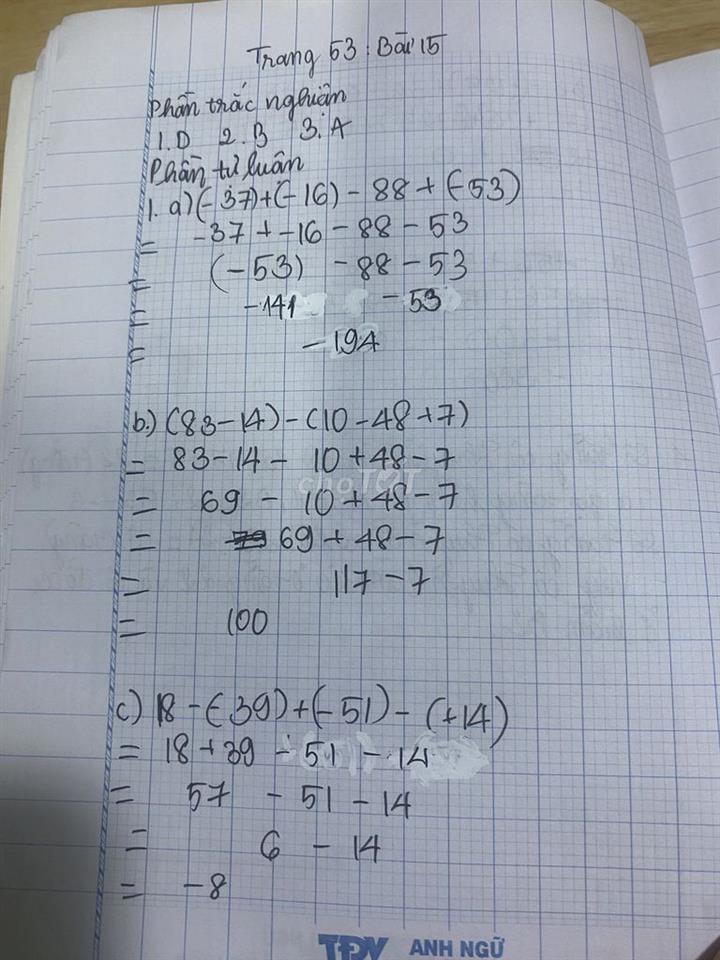 Trang 53 : Bài 15
Phần trắc nghiệm
1. D 2. B 3. A
Phần tự luận
1. a) (-37)+(-16) - 88 + (-53)
= -37 + -16 - 88 - 53
= (-53) - 88 - 53
= -141 - 53
= -194
b.) (83-14) - (10 - 48 + 7)
= 83 - 14 - 10 + 48 - 7
= 69 - 10 + 48 - 7
= 69 + 48 - 7
= 117 - 7
= 100
c) 18 - (-39) + (-51) - (+14)
= 18 + 39 - 51 - 14
= 57 - 51 - 14
= 6 - 14
= -8
choTOT
TĐV ANH NGỮ